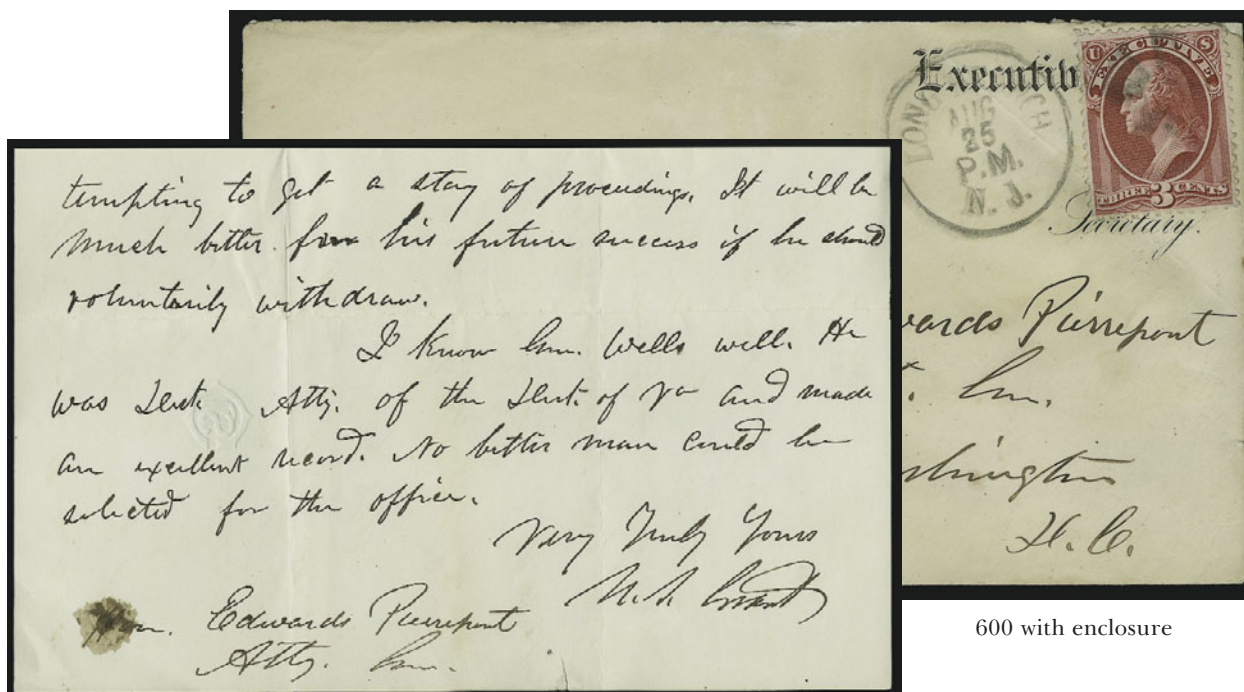 Executiv
LONG BRANCH
AUG
25
P.M.
N. J.
U S
EXECUTIVE
THREE 3 CENTS
Secretary.
wards Pierrepont
. Gen.
shington
D. C.
tempting to get a stay of proceedings. It will be
much better for his future success if he should
voluntarily withdraw.
I know Gen. Wells well. He
was Dist. Atty. of the Dist. of Va and made
an excellent record. No better man could be
selected for the office.
Very Truly Yours
U. S. Grant
Hon. Edwards Pierrepont
Atty. Gen.
600 with enclosure